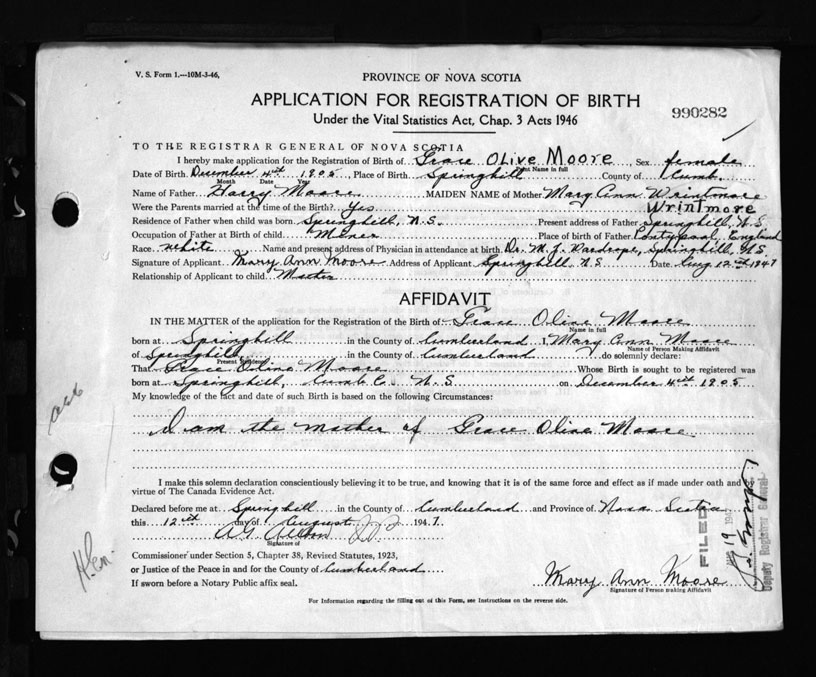 V. S. Form 1.—10M-3-46.
PROVINCE OF NOVA SCOTIA
APPLICATION FOR REGISTRATION OF BIRTH
990282
Under the Vital Statistics Act, Chap. 3 Acts 1946
TO THE REGISTRAR GENERAL OF NOVA SCOTIA
I hereby make application for the Registration of Birth of Grace Olive Moore, Sex female
Print Name in full
Date of Birth December 4th 1905, Place of Birth Springhill County of Cumb.
Month Date Year
Name of Father Harry Moore MAIDEN NAME of Mother Mary Ann Wrintmore
Wrintmore
Were the Parents married at the time of the Birth? Yes
Residence of Father when child was born Springhill, N.S. Present address of Father Springhill, N.S.
Occupation of Father at Birth of child Miner Place of birth of Father England
Race white Name and present address of Physician in attendance at birth Dr. M. J. Wardrope, Springhill, N.S.
Signature of Applicant Mary Ann Moore Address of Applicant Springhill N.S. Date Aug 12th 1947
Relationship of Applicant to child Mother
AFFIDAVIT
IN THE MATTER of the application for the Registration of the Birth of Grace Olive Moore
Name in full
born at Springhill in the County of Cumberland I, Mary Ann Moore
Name of Person Making Affidavit
of Springhill, in the County of Cumberland do solemnly declare:
Present Residence
That Grace Olive Moore Whose Birth is sought to be registered was
born at Springhill, Cumb. Co. N.S. on December 4th 1905
My knowledge of the fact and date of such Birth is based on the following Circumstances:
I am the mother of Grace Olive Moore
I make this solemn declaration conscientiously believing it to be true, and knowing that it is of the same force and effect as if made under oath and
virtue of The Canada Evidence Act.
Declared before me at Springhill in the County of Cumberland and Province of Nova Scotia
this 12th day of August 1947
Signature of
Commissioner under Section 5, Chapter 38, Revised Statutes, 1923,
or Justice of the Peace in and for the County of Cumberland
If sworn before a Notary Public affix seal.
Mary Ann Moore
Signature of Person making Affidavit
For Information regarding the filling out of this Form, see Instructions on the reverse side.
FILED
19 194
Deputy Registrar General